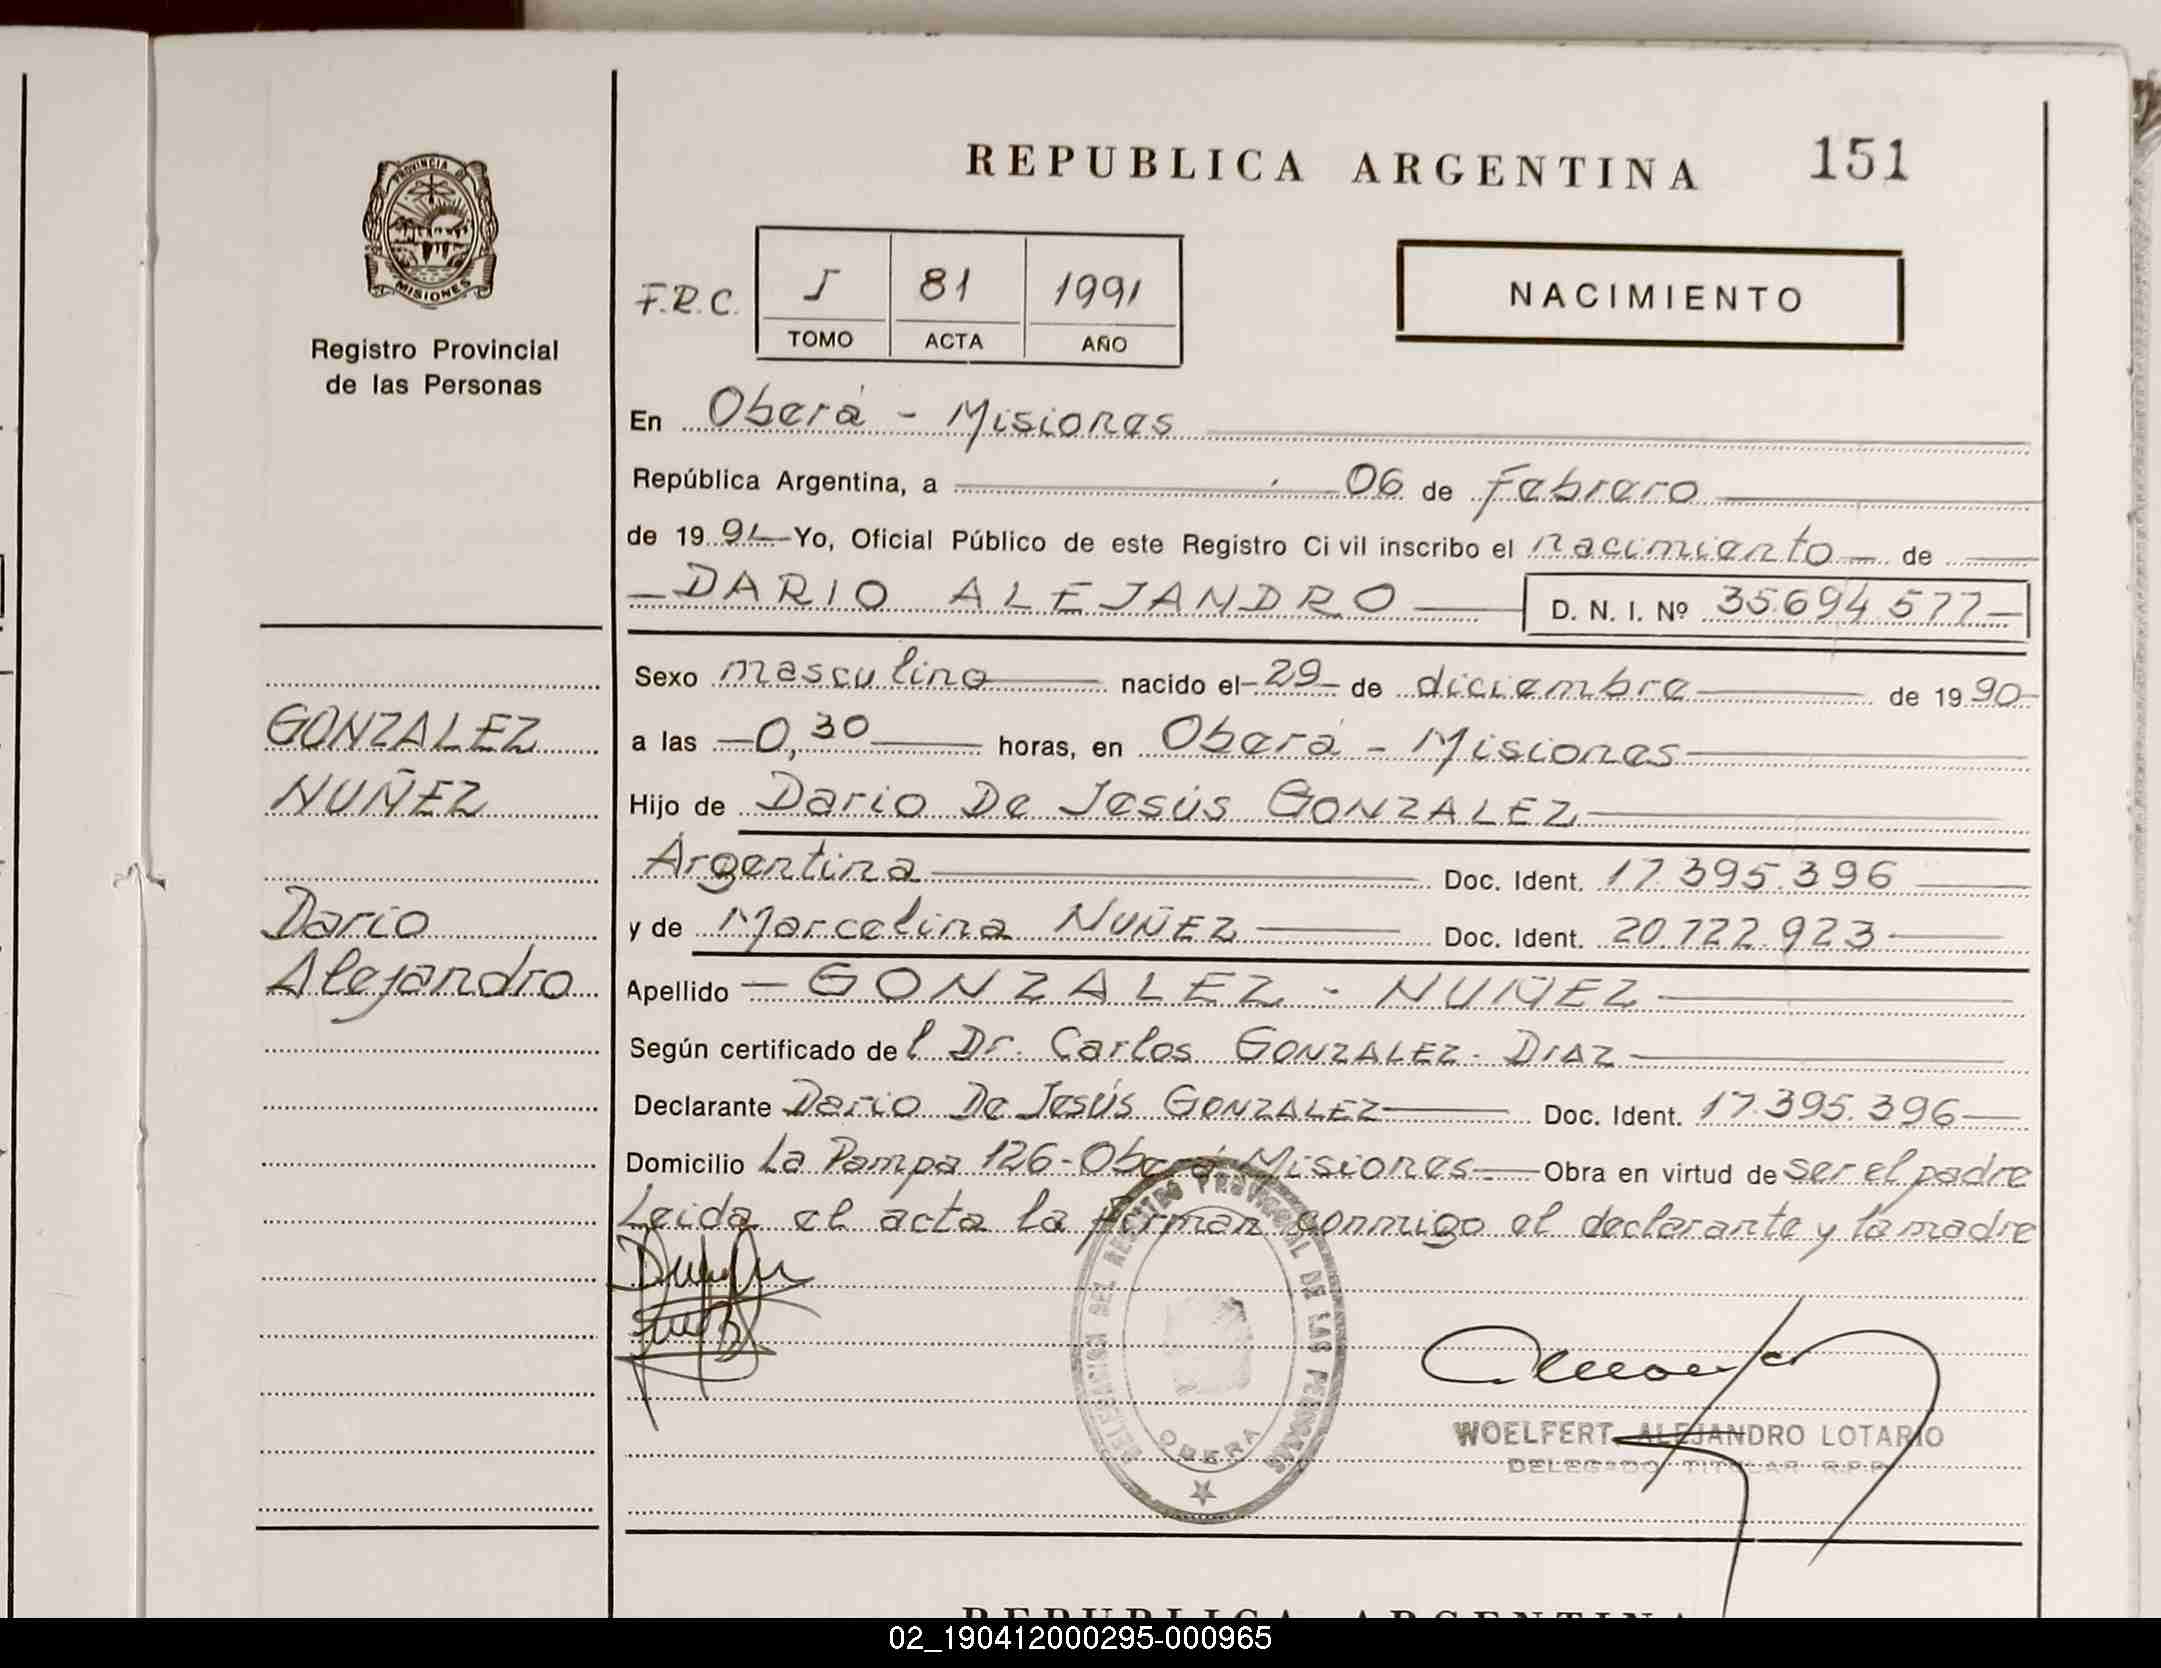 REPUBLICA ARGENTINA 151
PROVINCIA DE
MISIONES
Registro Provincial
de las Personas
F.R.C.
81 1991
TOMO ACTA AÑO
NACIMIENTO
En Oberá - Misiones
República Argentina, a 06 de Febrero
de 1991 Yo, Oficial Público de este Registro Civil inscribo el nacimiento de
DARIO ALEJANDRO D. N. I. Nº 35.694.577
Sexo masculino nacido el 29 de diciembre de 1990
a las 0,30 horas, en Oberá - Misiones
Hijo de Dario De Jesús GONZALEZ
Argentina Doc. Ident. 17.395.396
y de Marcelina NUÑEZ Doc. Ident. 20.722.923
Apellido GONZALEZ - NUÑEZ
Según certificado del Dr. Carlos GONZALEZ - DIAZ
Declarante Dario De Jesús GONZALEZ Doc. Ident. 17.395.396
Domicilio La Pampa 126 - Oberá Misiones Obra en virtud de ser el padre
Leida el acta la firman conmigo el declarante y la madre
GONZALEZ
NUÑEZ
Dario
Alejandro
DELEGACION DEL REGISTRO PROVINCIAL DE LAS PERSONAS
OBERA
WOELFERT ALEJANDRO LOTARIO
DELEGADO TITULAR R.P.P.
REPUBLICA ARGENTINA
02_190412000295-000965